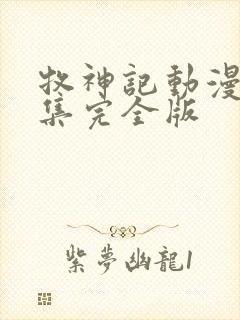 牧神記動漫
集完全版
紫夢幽龍1